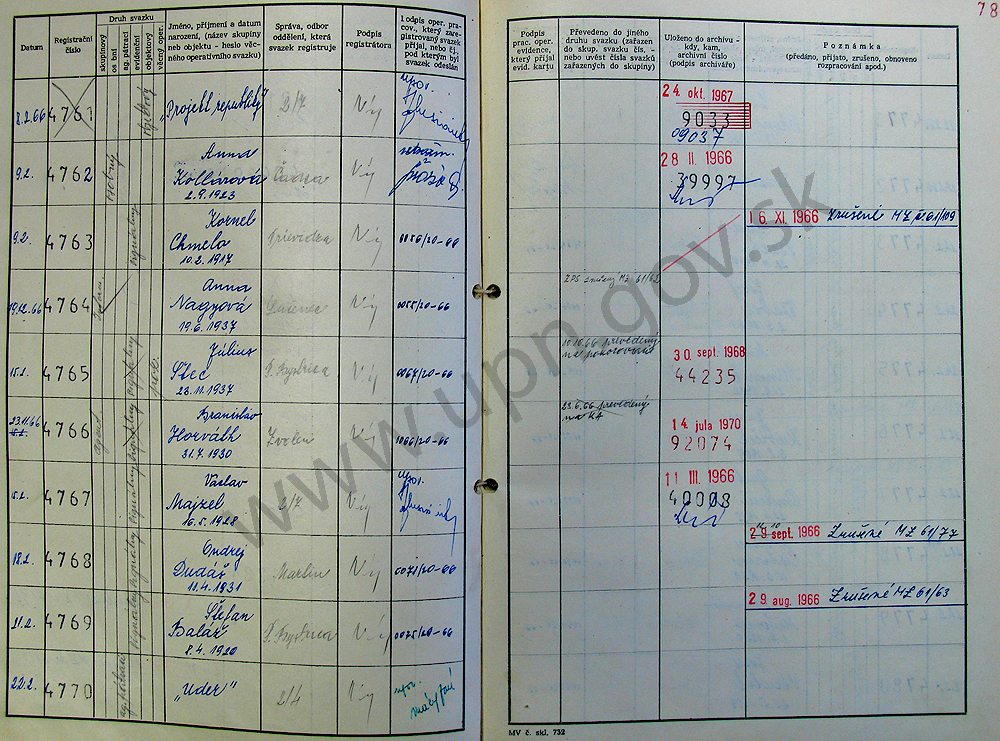 78
Datum
Registrační číslo
Druh svazku
skupinový
osobní
ag. pátrací
evidenční
objektový
věcný oper.
Jméno, příjmení a datum
narození, (název skupiny
neb objektu - heslo věc-
ného operativního svazku)
Správa, odbor
oddělení, která
svazek registruje
Podpis
registrátora
Podpis oper. pra-
cov., který zare-
gistrovaný svazek
přijal, nebo čj.
pod kterým byl
svazek odeslán
Podpis
prac. oper.
evidence,
který přijal
evid. kartu
Převedeno do jiného
druhu svazku (zařazen
do skup. svazku čís. -
nebo uvést čísla svazků
zařazených do skupiny)
Uloženo do archivu -
kdy, kam,
archivní číslo
(podpis archiváře)
Poznámka
(předáno, přijato, zrušeno, obnoveno
rozpracování apod.)
8.2.66 4761 objektový „Projekt republiky" 2/7
24. okt. 1967
9033
09037
9.2. 4762 osobný
Anna
Kollárová
2.9.1923
Čadca
28 II. 1966
39997
9.2. 4763
Kornel
Chmelo
10.2.1917
Prievidza
16. XI. 1966 Zrušené MZ 61/109
4764
Anna
Nagyová
19.6.1937
Lučenec
0055/20-66
ZPS zrušený MZ 61/63
15.2. 4765
Július
Stec
23.11.1937
B. Bystrica
0067/20-66
10.10.66 prevedený
na pokorovaný
30. sept. 1968
44235
23.11.66 4766 agent
Branislav
Horváth
31.7.1930
Zvolen
1066/20-66
23.6.66 prevedený
na KA
14. júla 1970
92074
15.2. 4767
Václav
Majzel
16.5.1928
2/7
11 III. 1966
40008
18.2. 4768
Ondrej
Dudáš
11.4.1931
Martin
0071/20-66
29. sept. 1966 Zrušené MZ 61/77
21.2. 4769
Štefan
Baláž
8.4.1920
B. Bystrica
0075/20-66
29. aug. 1966 Zrušené MZ 61/63
22.2. 4770
„Úder"
2/4
MV č. skl. 732
www.upn.gov.sk